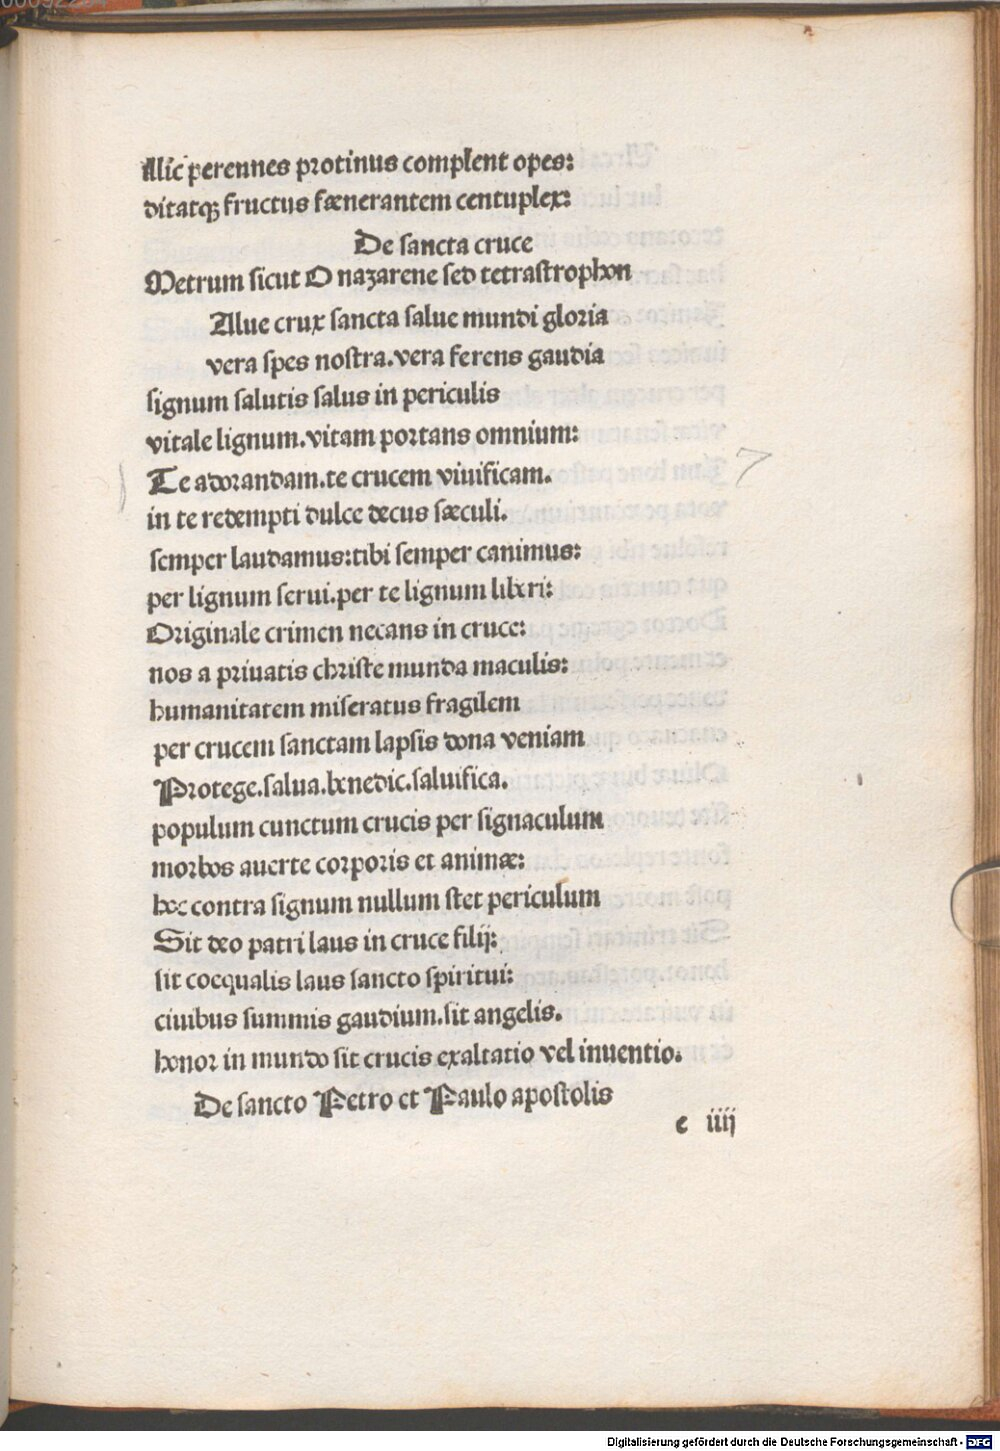 illic perennes protinus complent opes:
ditatqꝫ fructus fænerantem centuplex:
De sancta cruce
Metrum sicut O nazarene sed tetrastrophon
Alue crux sancta salue mundi gloria
vera spes nostra.vera ferens gaudia
signum salutis salus in periculis
vitale lignum.vitam portans omnium:
Te adorandam.te crucem viuificam.
in te redempti dulce decus sæculi.
semper laudamus:tibi semper canimus:
per lignum serui.per te lignum liberi:
Originale crimen necans in cruce:
nos a priuatis christe munda maculis:
humanitatem miseratus fragilem
per crucem sanctam lapsis dona veniam
Protege.salua.benedic.saluifica.
populum cunctum crucis per signaculum
morbos auerte corporis et animæ:
hoc contra signum nullum stet periculum
Sit deo patri laus in cruce filij:
sit coequalis laus sancto spiritui:
ciuibus summis gaudium.sit angelis.
honor in mundo sit crucis exaltatio vel inuentio.
De sancto Petro et Paulo apostolis
c iiij
Digitalisierung gefördert durch die Deutsche Forschungsgemeinschaft - DFG